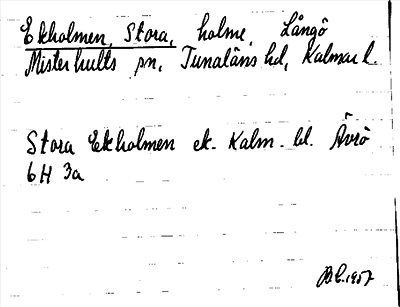 Ekholmen, Stora, holme, Långö
Misterhults sn, Tunaläns hd, Kalmar l.
Stora Ekholmen ek. Kalm. bl. Ävrö
6H 3a
B.E. 1957